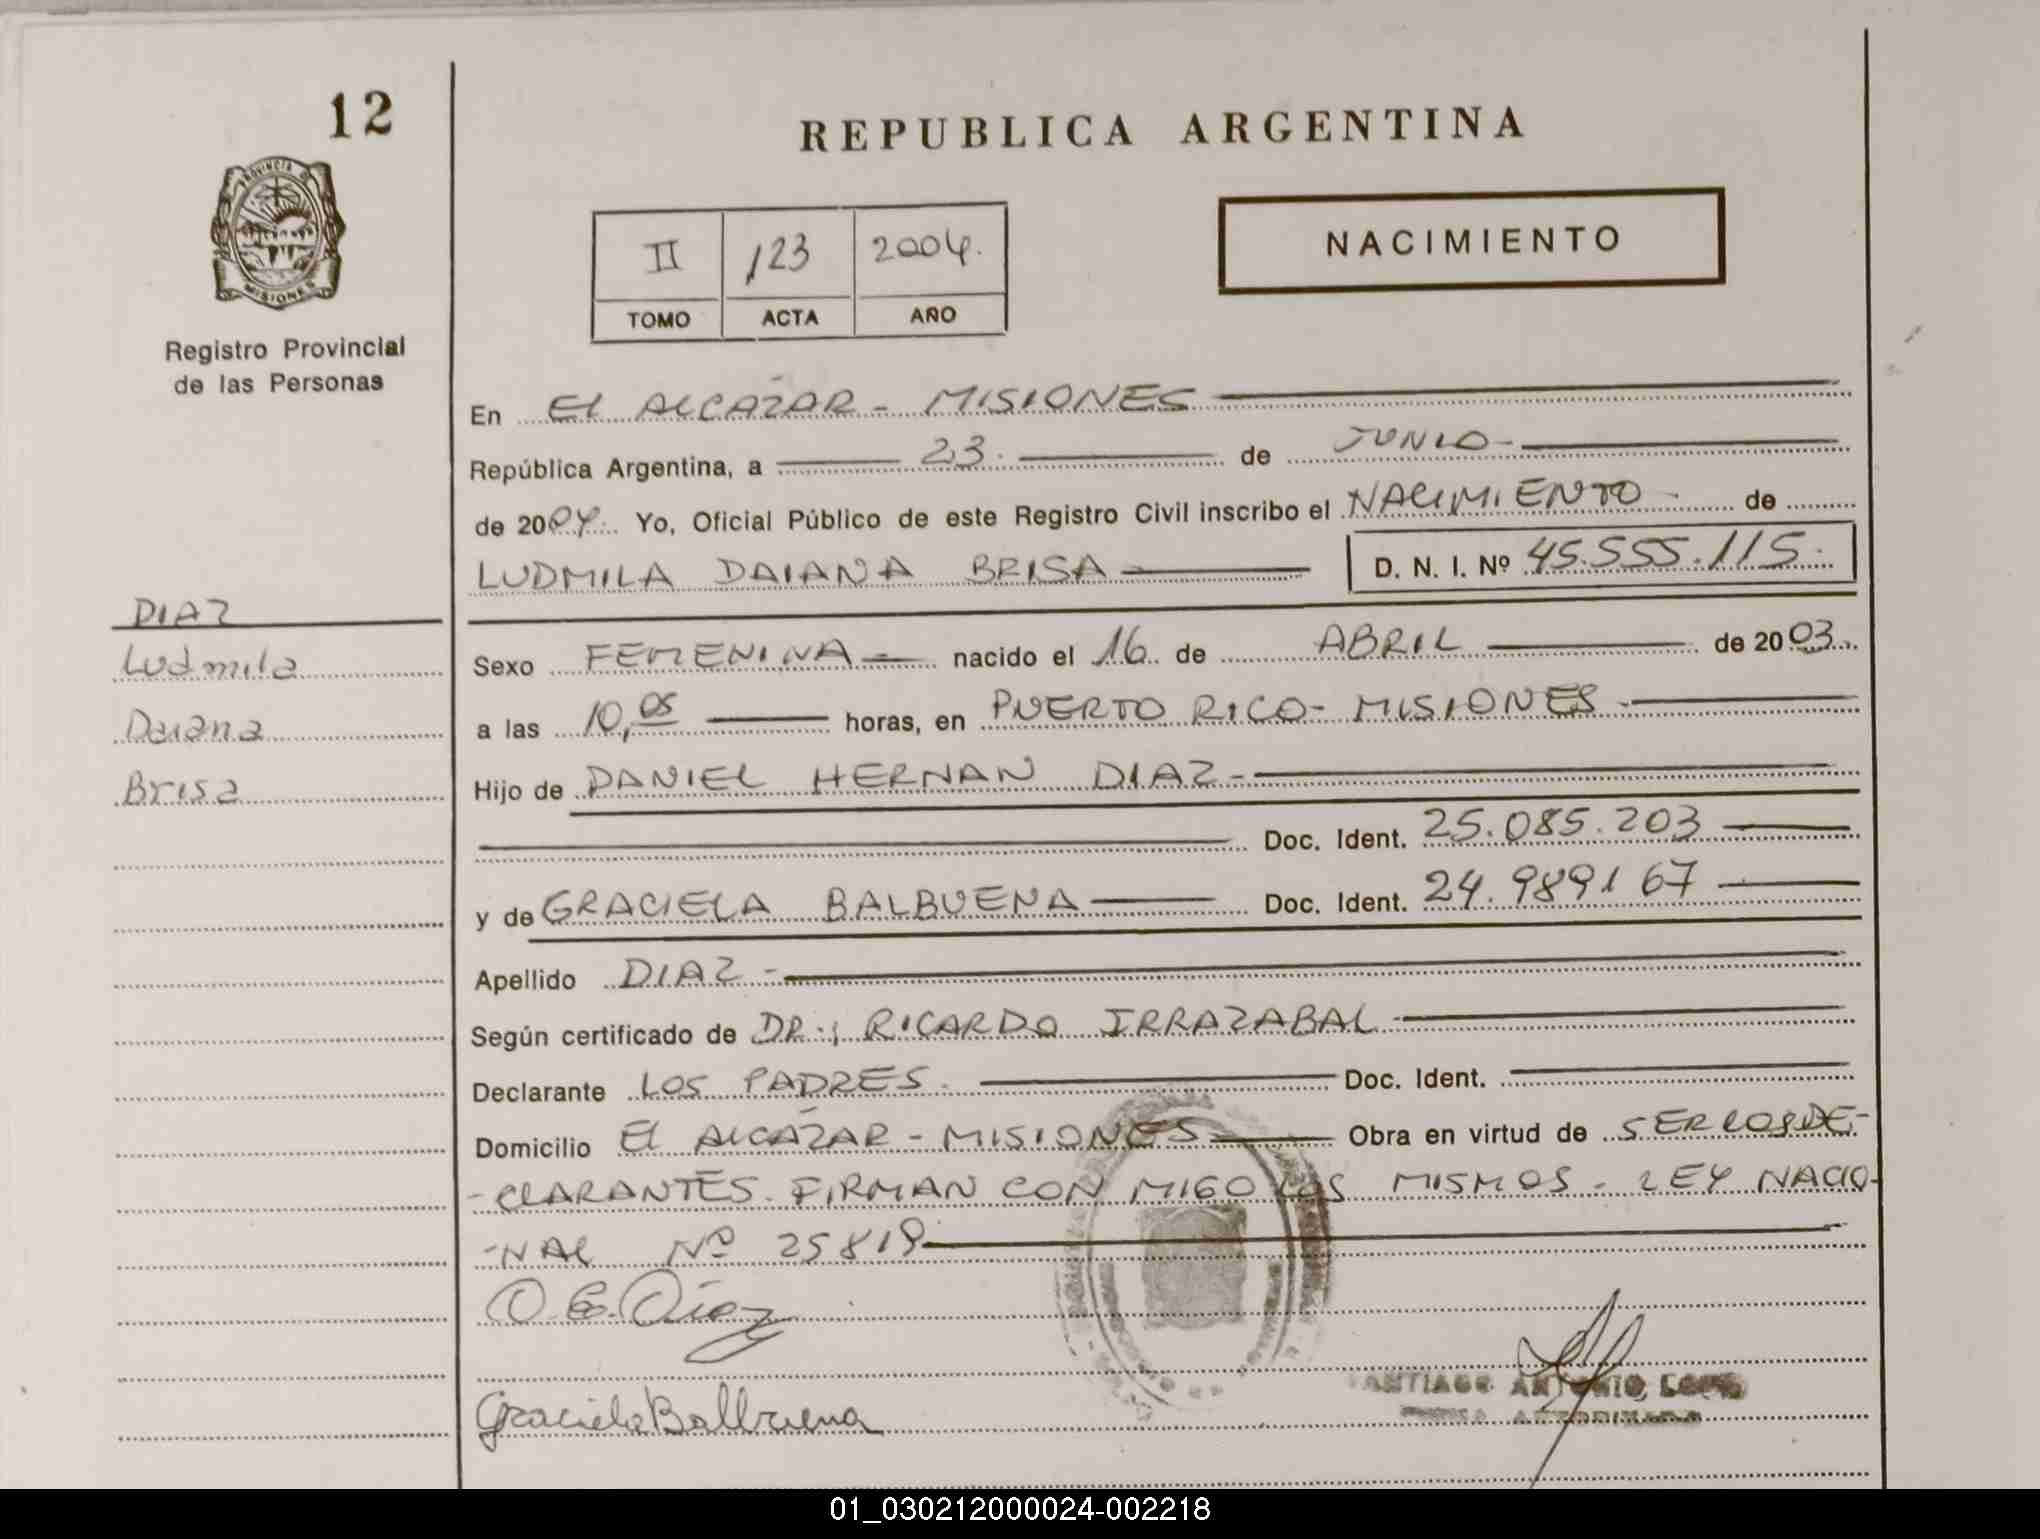 12
PROVINCIA D
MISIONES
Registro Provincial
de las Personas
REPUBLICA ARGENTINA
II 123 2004.
TOMO ACTA AÑO
NACIMIENTO
En El ALCAZAR - MISIONES
República Argentina, a 23. de JUNIO -
de 2004. Yo, Oficial Público de este Registro Civil inscribo el NACIMIENTO - de
LUDMILA DAIANA BRISA D. N. I. Nº 45.555.115.
DIAZ
Ludmila
Daiana
Brisa
Sexo FEMENINA - nacido el 16 de ABRIL de 2003.
a las 10,05 horas, en PUERTO RICO - MISIONES -
Hijo de DANIEL HERNAN DIAZ -
Doc. Ident. 25.085.203
y de GRACIELA BALBUENA Doc. Ident. 24.989167
Apellido DIAZ -
Según certificado de DR., RICARDO IRRAZABAL
Declarante LOS PADRES. Doc. Ident.
Domicilio El ALCAZAR - MISIONES Obra en virtud de SER LOS DE-
-CLARANTES. FIRMAN CON MIGO LOS MISMOS - LEY NACIO-
-NAL Nº 25819
Diaz
Graciela Balbuena
ANTONIO
01_030212000024-002218